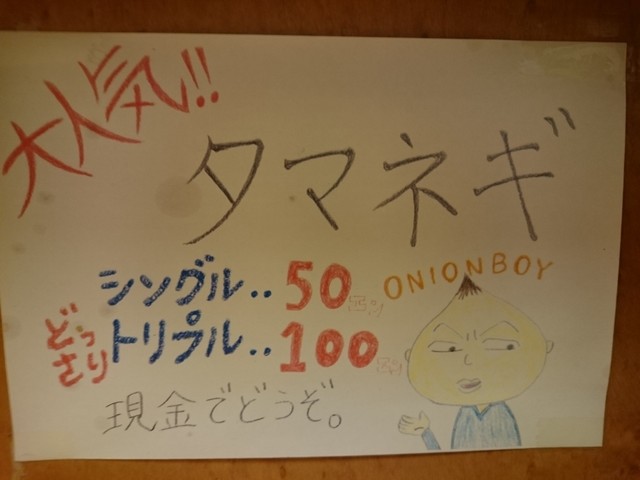 大人気!!
タマネギ
シングル‥50エン
ONIONBOY
どっさり
トリプル‥100エン
現金でどうぞ。